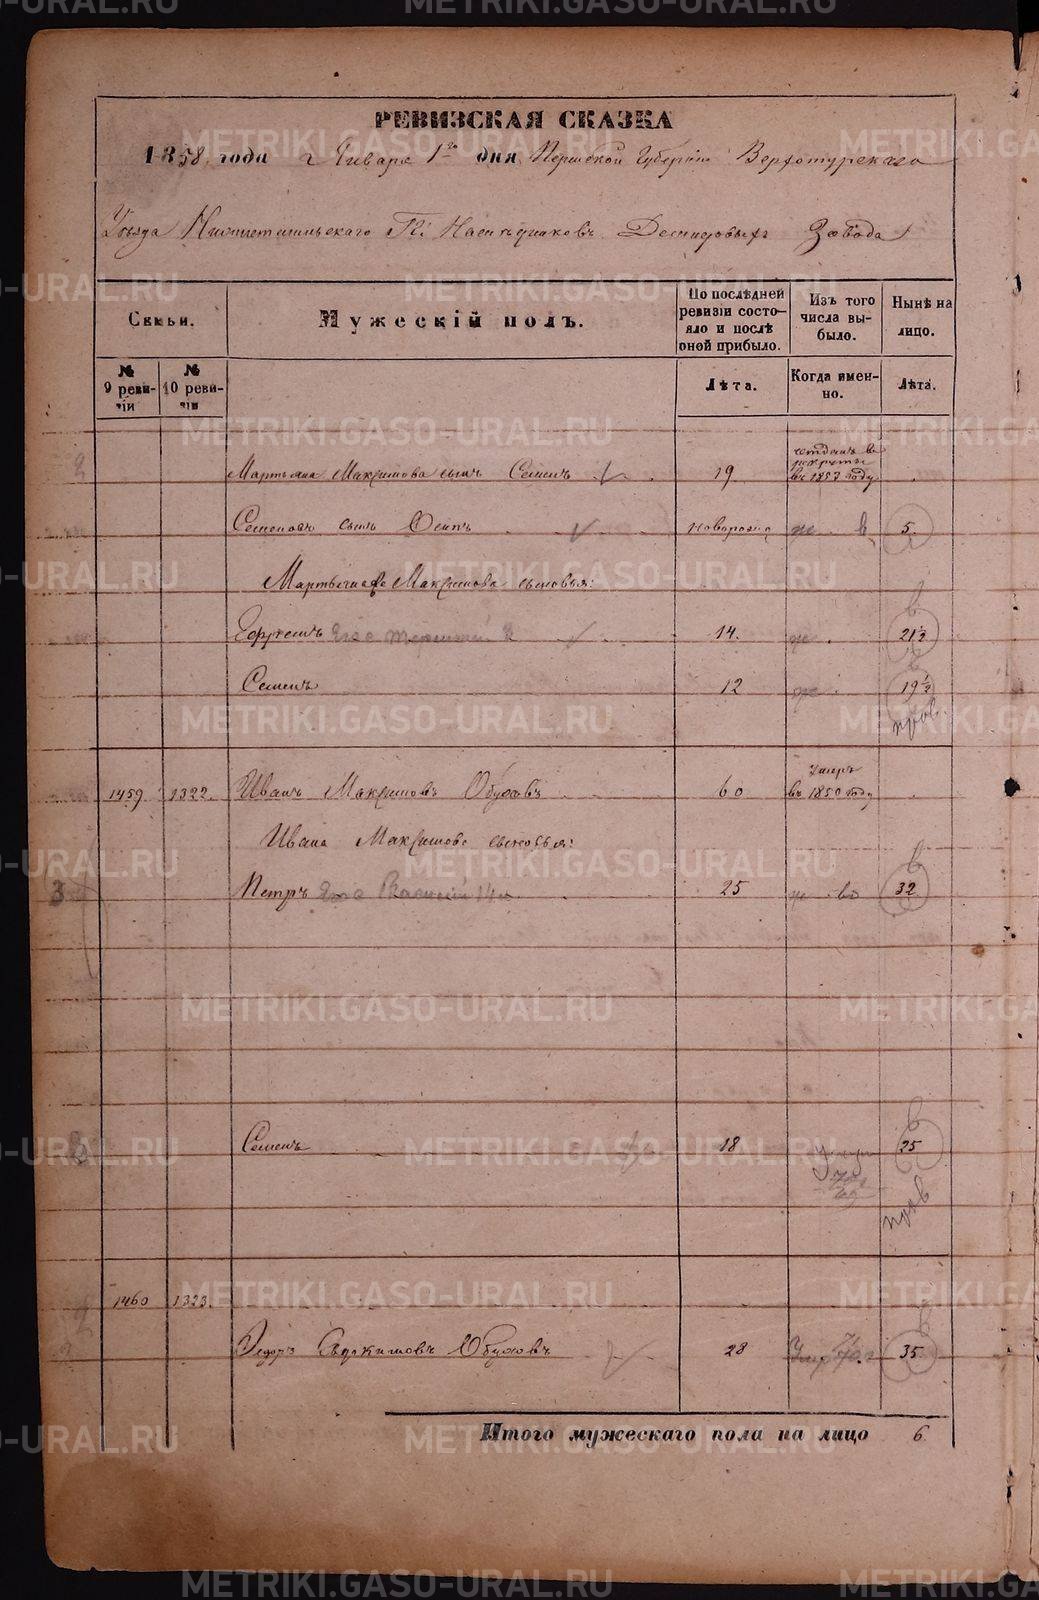 РЕВИЗСКАЯ СКАЗКА
1858 года Января 1го дня Пермской Губернiи Верхотурскаго
Уѣзда Нижнетагильскаго Гг. Наслѣдниковъ Демидовыхъ Завода
Семьи.
Мужескiй полъ.
По послѣдней ревизiи состояло и послѣ оной прибыло.
Изъ того числа выбыло.
Нынѣ на лицо.
№ 9 ревизiи
№ 10 ревизiи
Лѣта.
Когда именно.
Лѣта.
Мартына Максимова сынъ Семенъ 19 отданъ въ рекруты въ 1853 году
Семеновъ сынъ Осипъ новорожд 5
Мартына Максимова сыновья:
Ефремъ 14. 21½
Семенъ 12 19½
пров
1459. 1322. Иванъ Максимовъ Обуховъ 60 умеръ въ 1850 году
Ивана Максимова сыновья:
3
Петръ Его Василий 25 32
Семенъ 18 25
пров
1460 1323.
2
Федоръ Обуховъ 28 35.
Итого мужескаго пола на лицо 6
METRIKI.GASO-URAL.RU